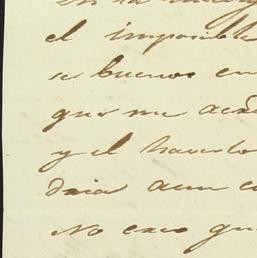 el imposible
se buenos en
que me acad
y el hacerlo
dria aun c
No creo qu